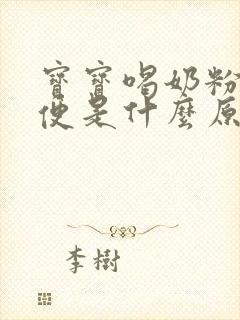 寶寶喝奶粉
便是什麼原
李樹